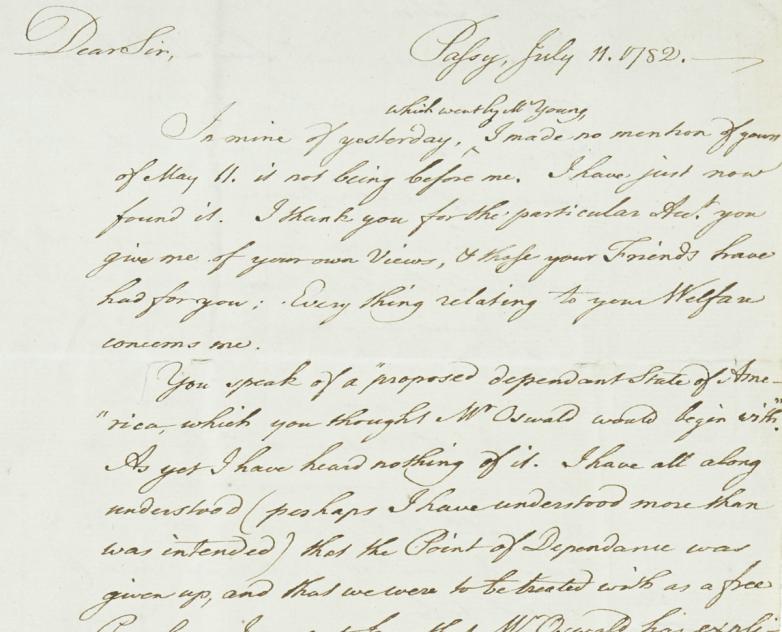 Dear Sir, Passy, July 11. 1782.
which went by Mr Young,
In mine of yesterday, ^ I made no mention of yours
of May 11. it not being before me. I have just now
found it. I thank you for the particular Acct. you
give me of your own Views, & those your Friends have
had for you; Every thing relating to your Welfare
concerns me.
You speak of a "proposed dependant State of Ame-
"rica, which you thought Mr Oswald would begin with".
As yet I have heard nothing of it. I have all along
understood (perhaps I have understood more than
was intended) that the Point of Dependance was
given up, and that we were to be treated with as a free
that Mr Oswald has expli-